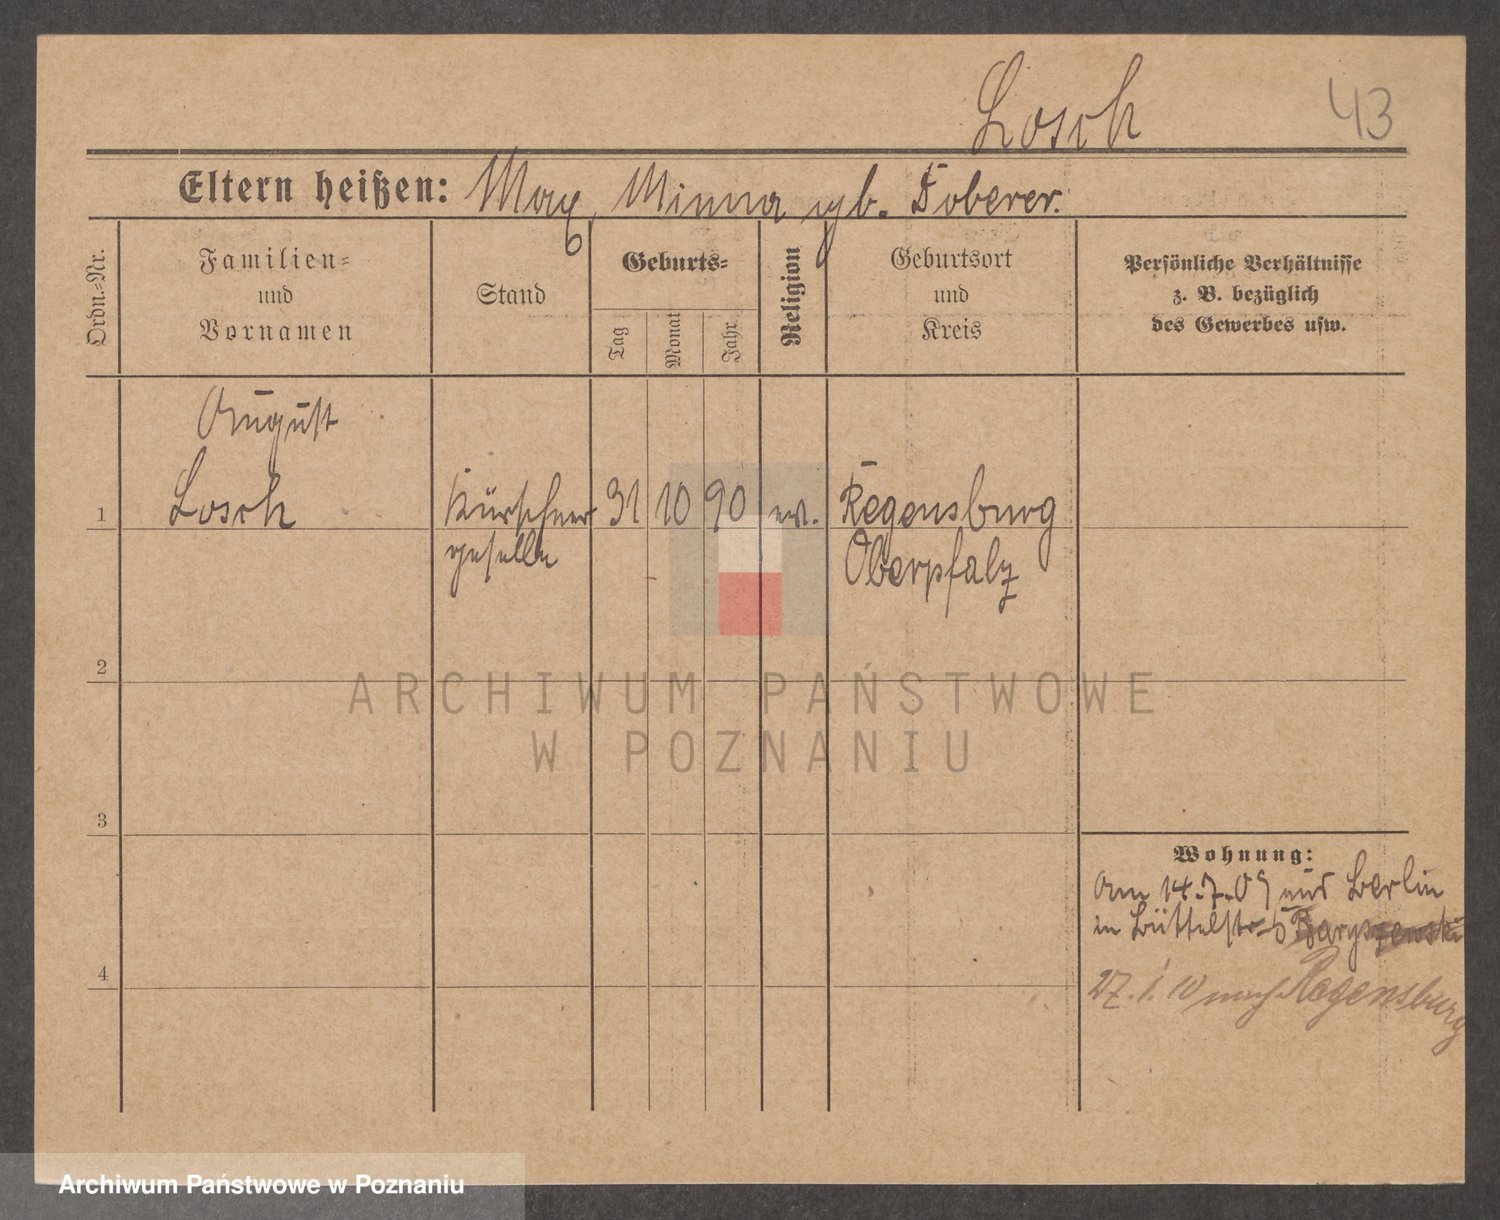 Losch
43
Eltern heißen: Max, Minna geb. Doberer.
Ordn.-Nr.
Familien-
und
Vornamen
Stand
Geburts-
Tag
Monat
Jahr
Religion
Geburtsort
und
Kreis
Persönliche Verhältnisse
z. B. bezüglich
des Gewerbes usw.
August
1 Losch Kürschner 31 10 90 ev. Regensburg
geselle Oberpfalz
2
ARCHIWUM PAŃSTWOWE
W POZNANIU
3
Wohnung:
Am 14.7.09 aus Berlin
in Büttelstr.
4
27.1.10 nach Regensburg
Archiwum Państwowe w Poznaniu